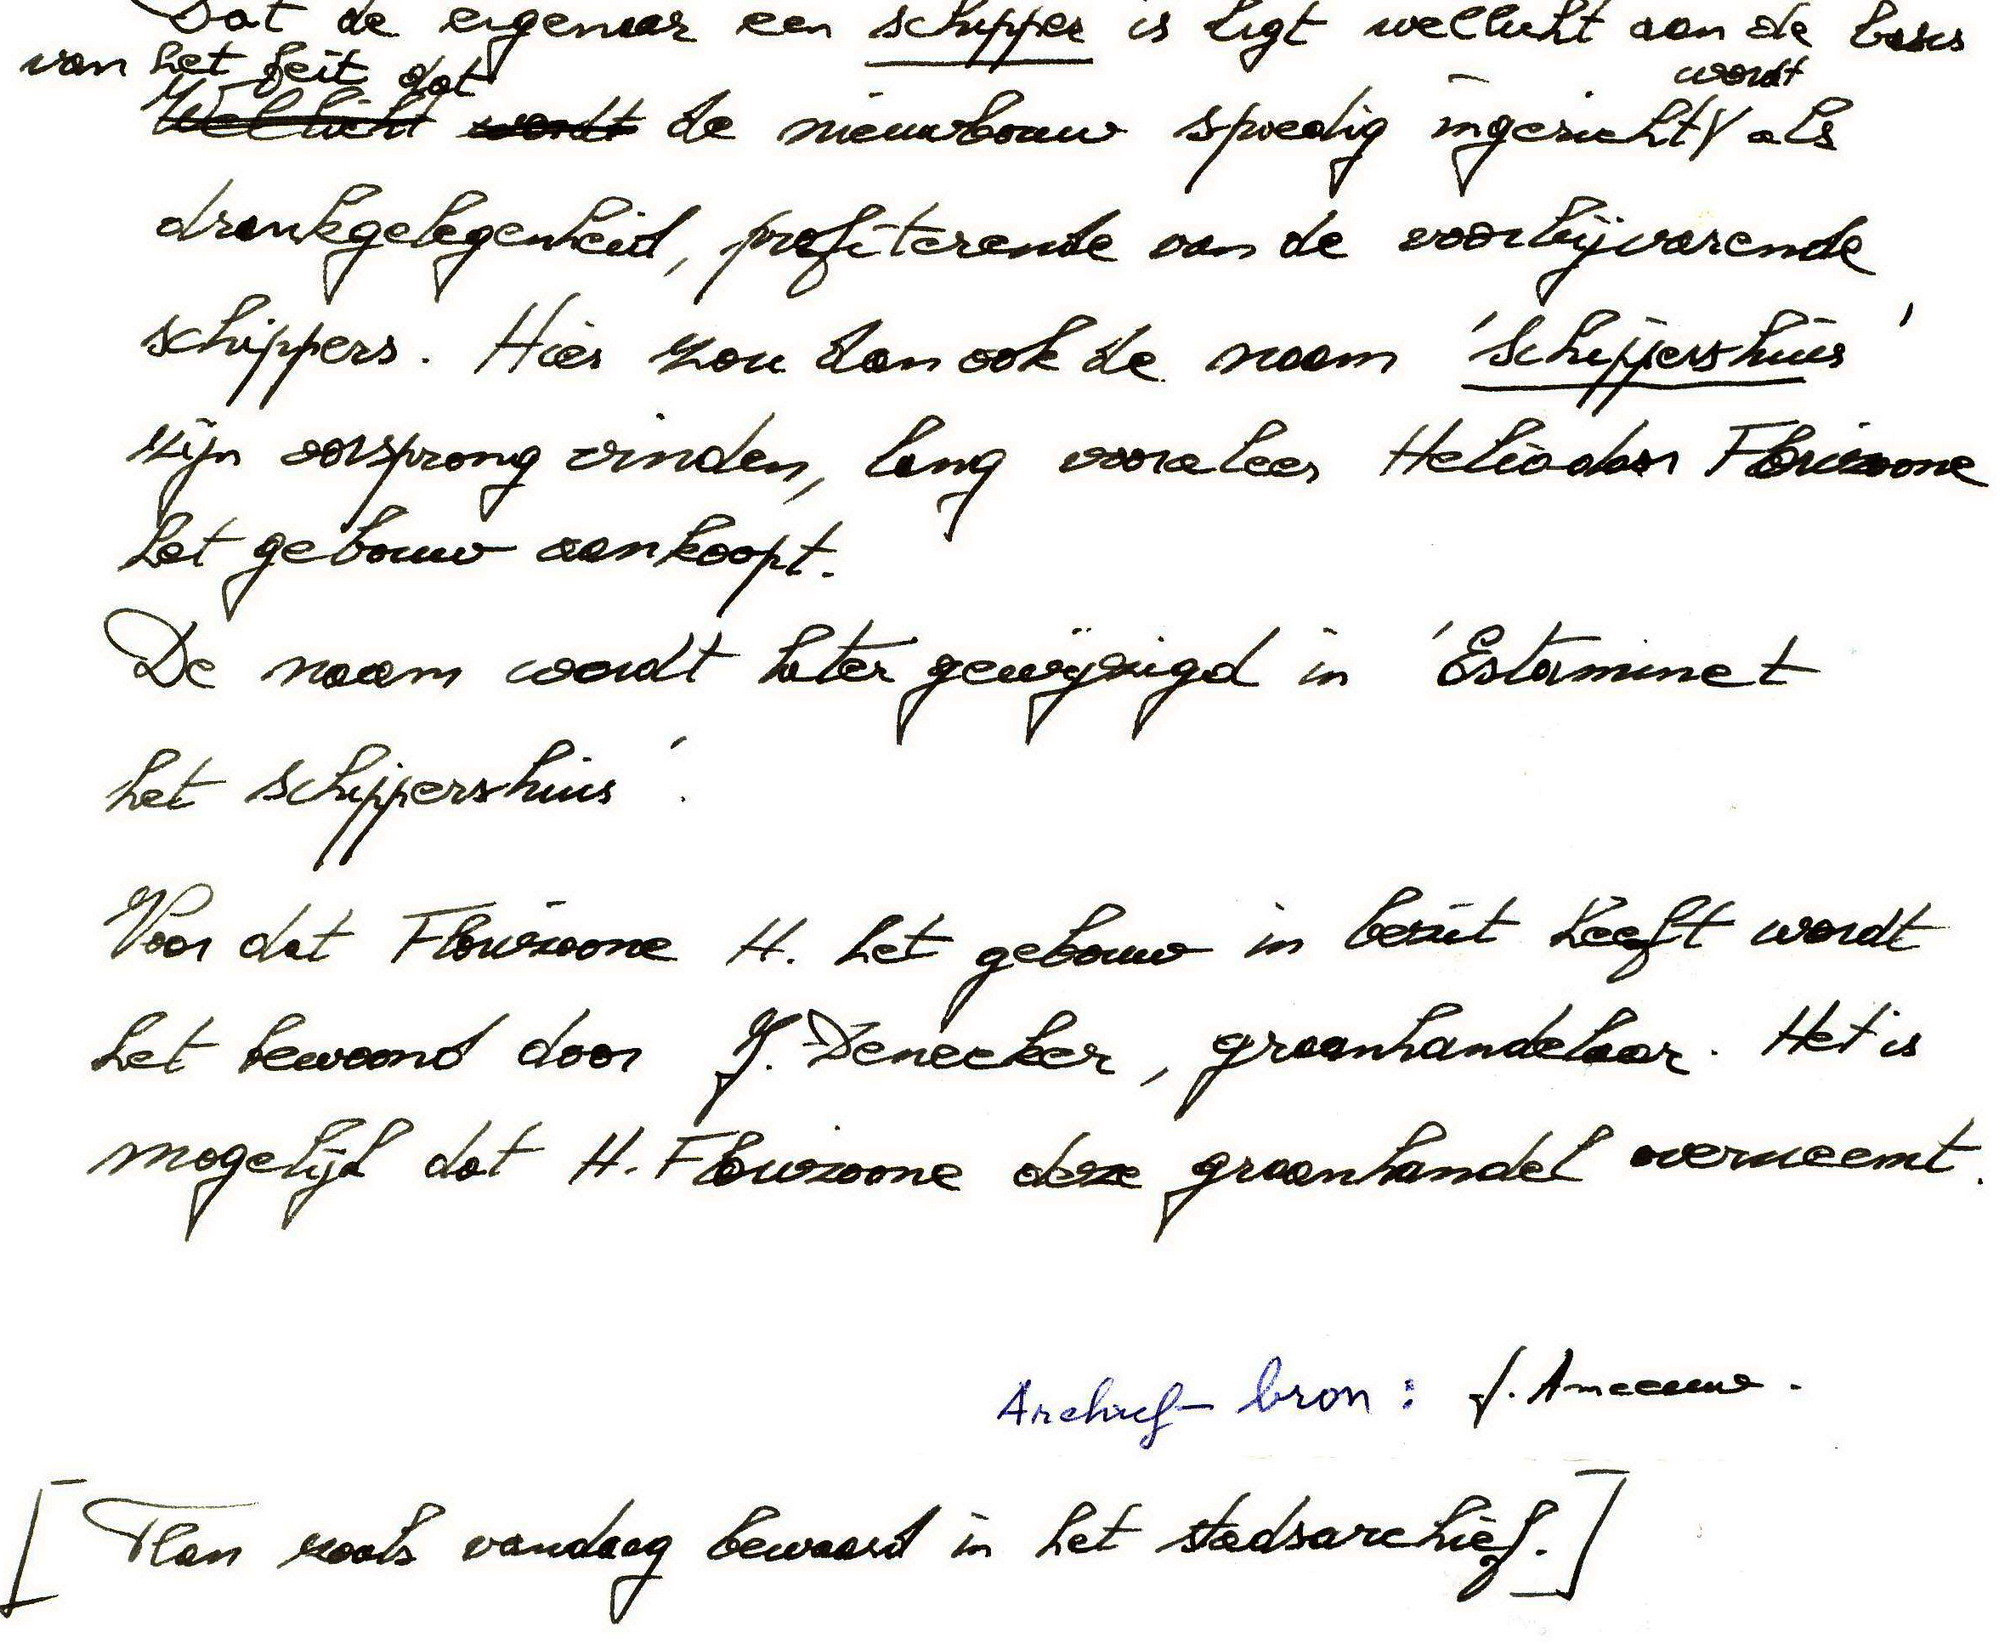 Dat de eigenaar een schipper is ligt wellicht aan de basis
van het feit dat
wordt
Wellicht wordt de nieuwbouw spoedig ingericht als
drankgelegenheid, profiterende van de voorbijvarende
schippers. Hier zou dan ook de naam 'Schippershuis'
zijn oorsprong vinden, lang vooraleer Heliodoor Flouizoone
het gebouw aankoopt.
De naam wordt later gewijzigd in 'Estaminet
het schippershuis'.
Voor dat Flouizoone H. het gebouw in bezit heeft wordt
het bewoond door J. Denecker, graanhandelaar. Het is
mogelijk dat H. Flouizoone deze graanhandel overneemt.
Archief bron: J. Ameeuw.
[Plan zoals vandaag bewaard in het stadsarchief.]